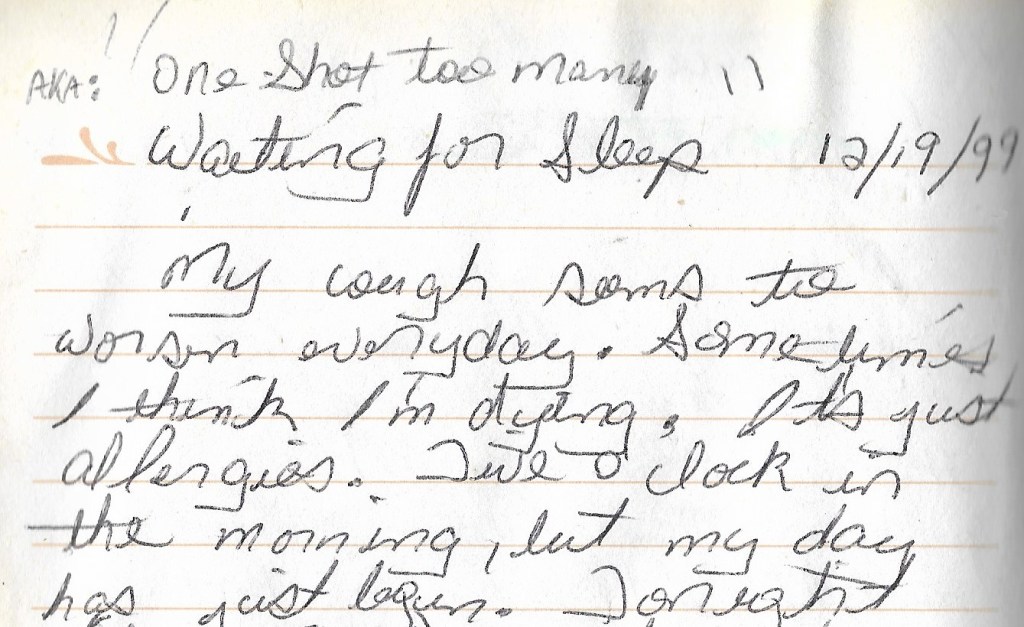 AKA: One Shot too many !!
Waiting for Sleep 12/19/99
My cough seems to
worsen everyday. Sometimes
I think I'm dying. Its just
allergies. Five o clock in
the morning, but my day
has just begun. Tonight